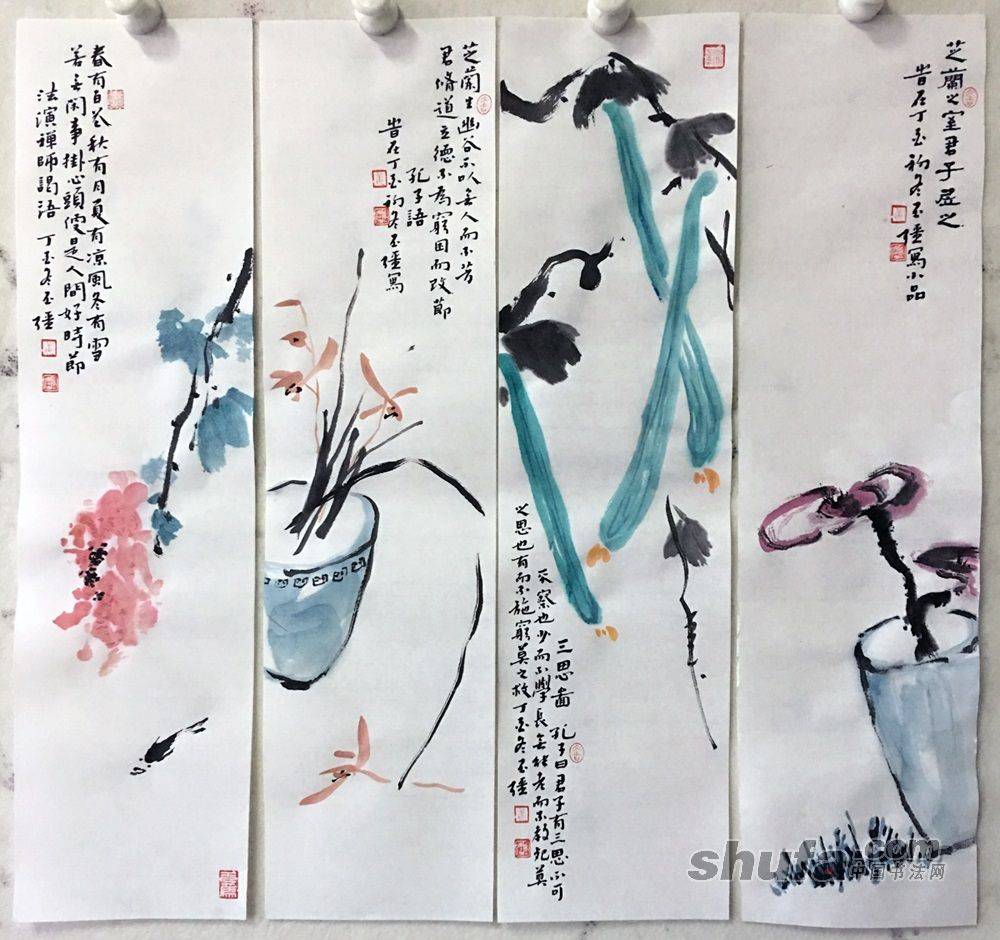 春有百花秋有月夏有凉風冬有雪
若無閑事掛心頭便是人間好時節
法演禪師謁语 丁酉冬玉
芝蘭生幽谷不以無人而不芳
君脩道立德不為窮困而改節
孔子語
昔在丁酉初冬玉
寫
三思啚 孔子曰君子有三思不可
不察也少而不學長無能老而不教死莫
之思也有而不施窮莫之救丁酉冬玉
芝蘭之室君子居之
昔在丁酉初冬玉
寫小品
shufa.com
中国书法网